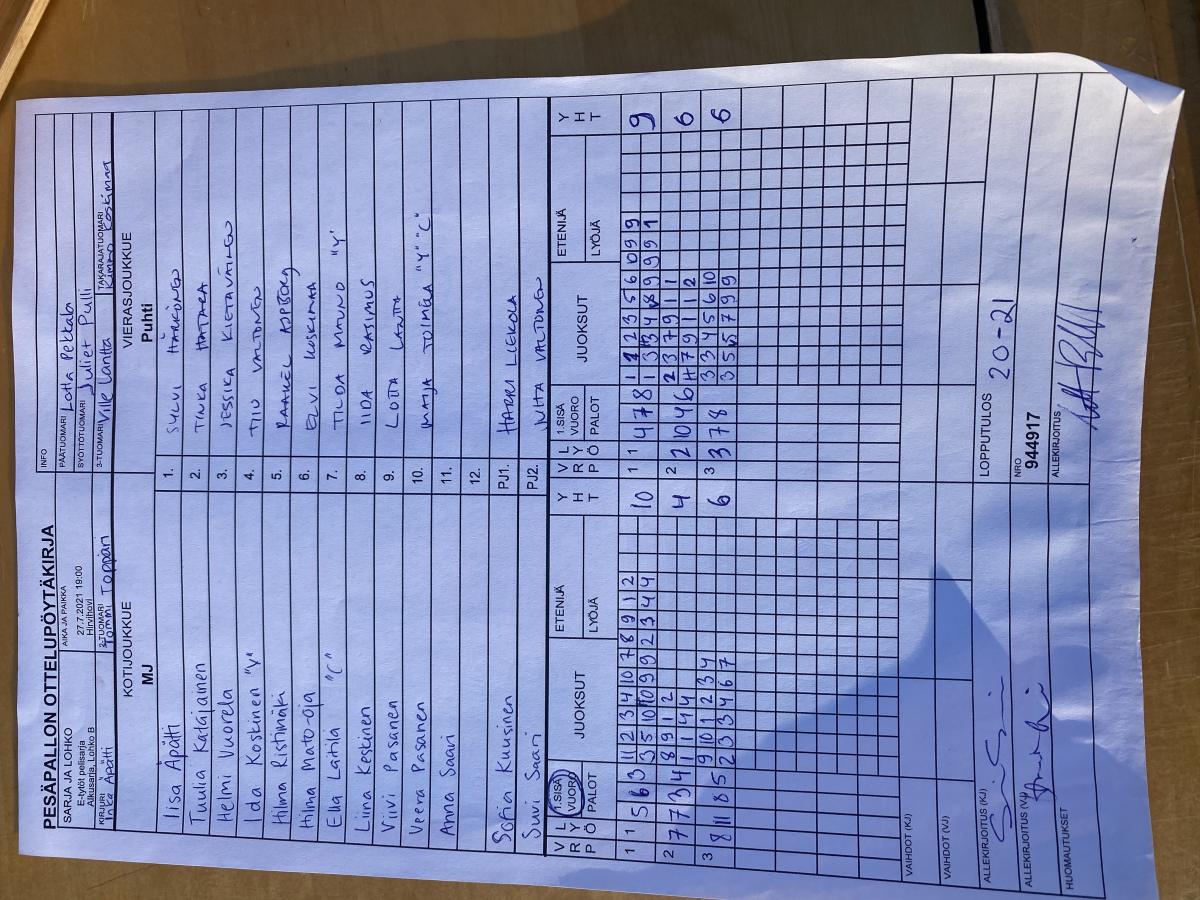 PESÄPALLON OTTELUPÖYTÄKIRJA
INFO
SARJA JA LOHKO
E-tytöt pelisarja
Alkusarja, Lohko B
AIKA JA PAIKKA
27.7.2021 19:00
Hirvihovi
PÄÄTUOMARI Lotta Pekkala
SYÖTTÖTUOMARI Juliet Pulli
KIRJURI Inka Äpätti
2-TUOMARI Tommi Toppari
3-TUOMARI Ville Lantta
TAKARAJATUOMARI Kimmo Koskimaa
KOTIJOUKKUE
MJ
VIERASJOUKKUE
Puhti
Iisa Äpätti 1. SYLVI HÄRKÖNEN
Tuulia Katajainen 2. TINKA HATARA
Helmi Vuorela 3. JESSIKA KIETÄVÄINEN
Ida Koskinen "Y" 4. TIU VALTONEN
Hilma Ristimäki 5.
Hilma Mato-oja 6. ELVI KOSKIMAA
Ella Laitila "C" 7. TILDA MAUNO "Y"
Liina Keskinen 8. IIDA RASIMUS
Viivi Pasanen 9. LOTTA LANTTA
Veera Pasanen 10. MAIJA TOIMELA "Y" "C"
Anna Saari 11.
12.
Sofia Kuusinen PJ1. HARRI LIEKOLA
Suvi Saari PJ2. JUHA VALTONEN
VRP LYÖ 1.SISÄ VUORO PALOT JUOKSUT ETENIJÄ LYÖJÄ YHT VRP LYÖ 1.SISÄ VUORO PALOT JUOKSUT ETENIJÄ LYÖJÄ YHT
1 1 5 6 3 11 2 3 4 10 7 8 9 1 2 10 1 1 4 7 8 1 1 2 3 5 6 10 9 9 9
3 5 10 10 9 9 2 3 4 4 1 3 3 4 8 9 9 9 1
2 7 7 3 4 8 9 1 2 4 2 2 10 4 6 2 3 7 9 1 1 6
1 1 4 4 4 7 9 1 1 2
3 8 11 8 5 9 10 1 2 3 4 6 3 3 7 8 3 3 4 5 6 10 6
2 3 3 4 6 7 3 5 5 7 9 9
VAIHDOT (KJ)
VAIHDOT (VJ)
ALLEKIRJOITUS (KJ)
LOPPUTULOS 20-21
ALLEKIRJOITUS (VJ)
NRO
944917
HUOMAUTUKSET
ALLEKIRJOITUS